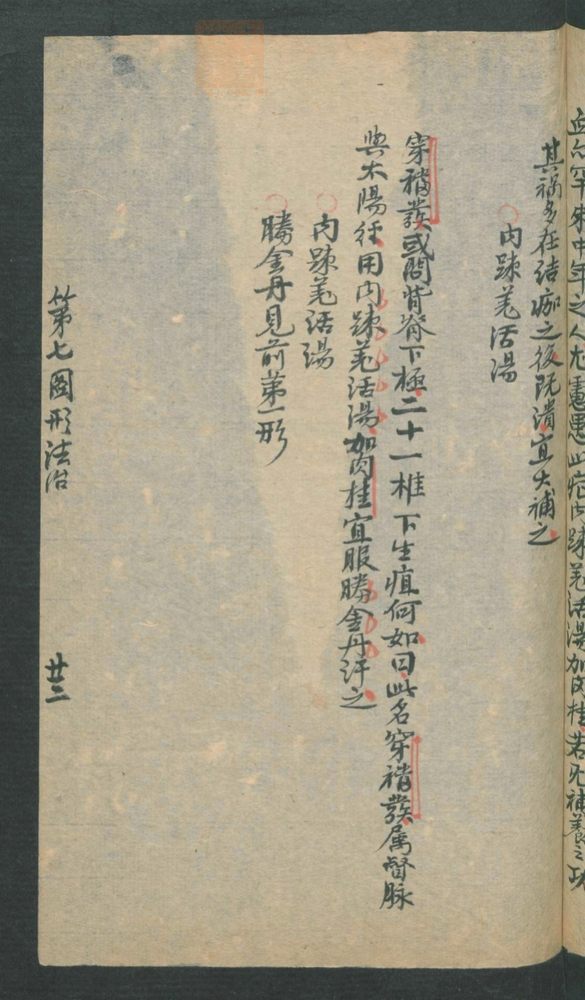 血亏卒來中年之人尤憲患此症内踈羌活湯加肉桂若兄補養之功
其禍多在结痂之後既潰宜大補之
○内踈羌活湯
穿襠發或問背脊下極二十一椎下生疽何如曰此名穿襠發属督脉
與太陽行用内踈羌活湯加肉桂宜服勝金丹汗之
○内踈羌活湯
○勝金丹見前第一形
第七圖形法治 廿三